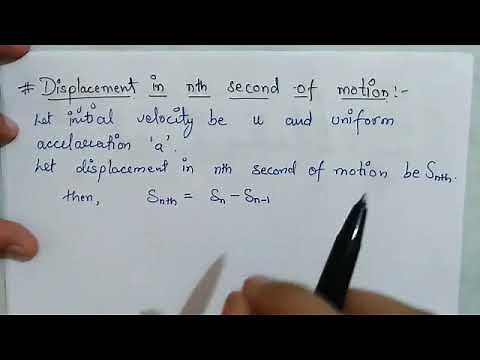 # Displacement in nth second of motion:-
Let initial velocity be u and uniform
accelaration 'a'.
Let displacement in nth second of motion be Snth.
then, Snth = Sn - Sn-1